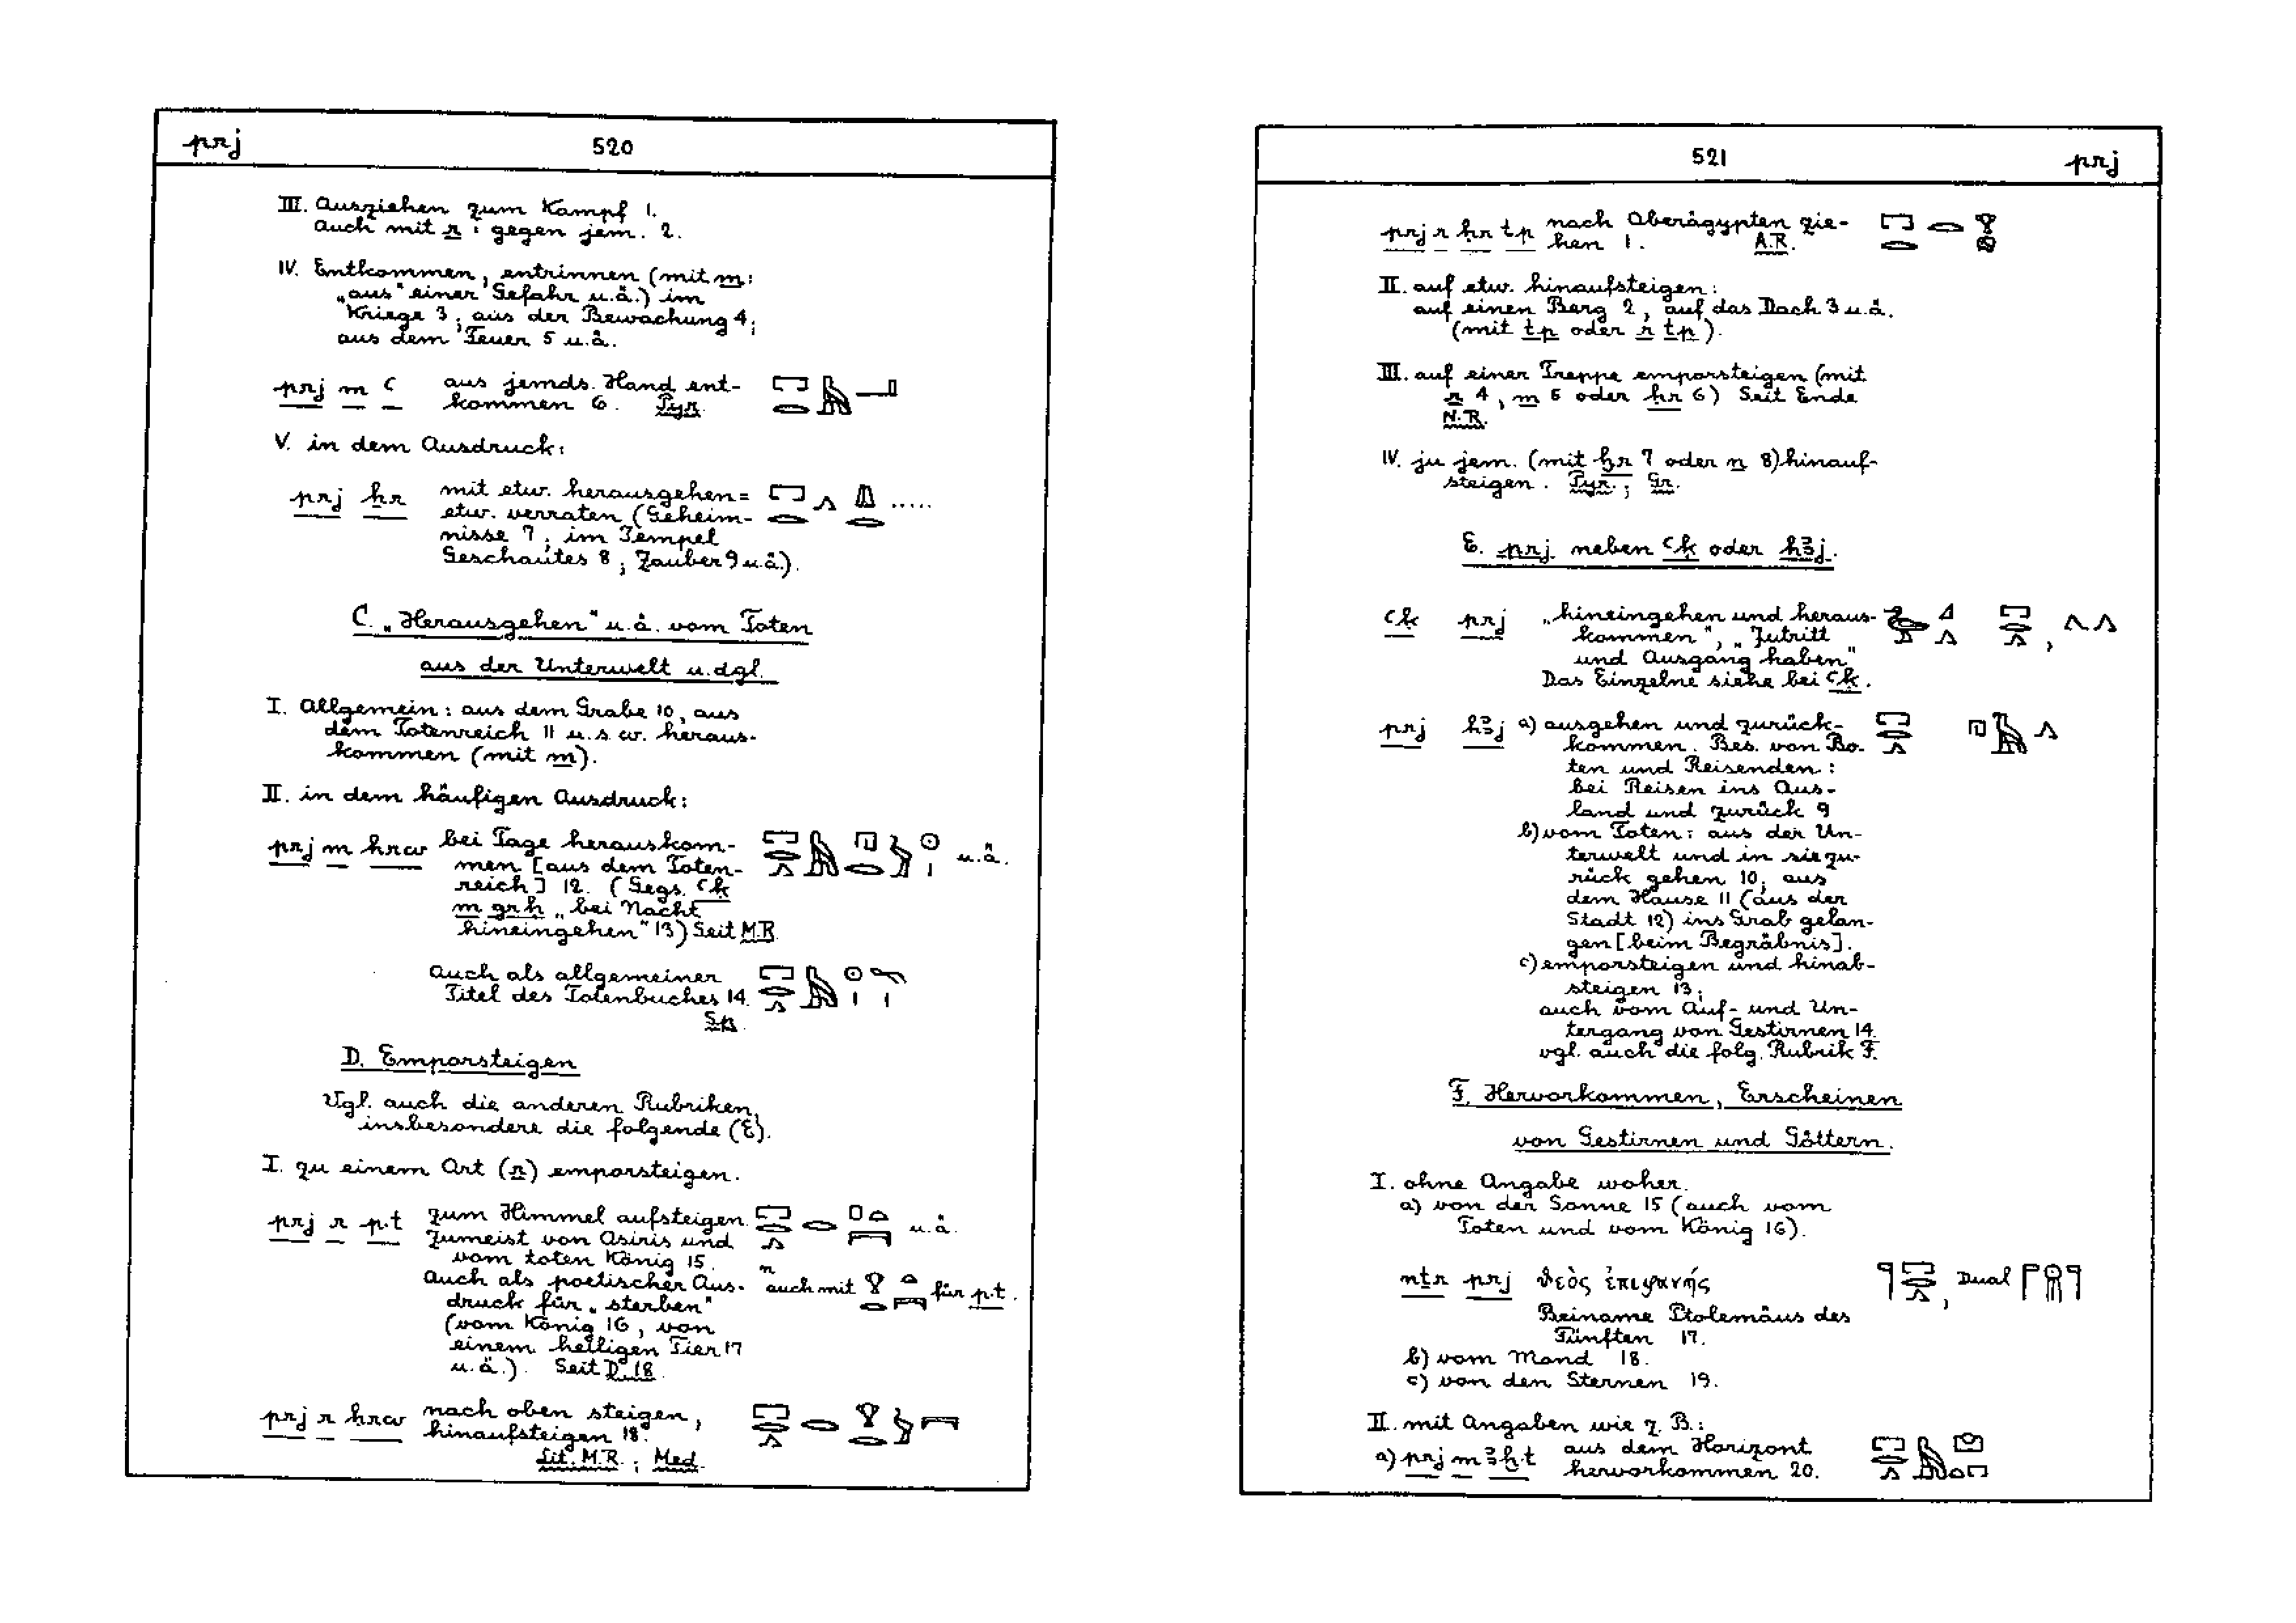 prj 520
III. Ausziehen zum Kampf 1.
Auch mit r: gegen jem. 2.
IV. Entkommen, entrinnen (mit m:
„aus“ einer Gefahr u.ä.) im
Kriege 3; aus der Bewachung 4;
aus dem Feuer 5 u.ä.
prj m ꜥ aus jemds. Hand ent-
kommen 6. Pyr.
V. in dem Ausdruck:
prj ẖr mit etw. herausgehen =
etw. verraten (Geheim-
nisse 7; im Tempel
Geschautes 8; Zauber 9 u.ä.).
C. „Herausgehen“ u.ä. vom Toten
aus der Unterwelt u.dgl.
I. Allgemein: aus dem Grabe 10, aus
dem Totenreich 11 u.s.w. heraus-
kommen (mit m).
II. in dem häufigen Ausdruck:
prj m hrw bei Tage herauskom- u.ä.
men [aus dem Toten-
reich] 12. (Gegs. ꜥḳ
m grḥ „bei Nacht
hineingehen“ 13) Seit M.R.
Auch als allgemeiner
Titel des Totenbuches 14.
Sp.
D. Emporsteigen
Vgl. auch die anderen Rubriken,
insbesondere die folgende (E).
I. zu einem Ort (r) emporsteigen.
prj r p.t zum Himmel aufsteigen. u.ä.
Zumeist von Osiris und
vom toten König 15.
Auch als poetischer Aus- auch mit für p.t.
druck für „sterben“
(vom König 16, von
einem heiligen Tier 17
u.ä.). Seit D. 18.
prj r ḥrw nach oben steigen,
hinaufsteigen 18.
Lit. M.R.; Med.
521 prj
prj r ḥr tp nach Oberägypten zie-
hen 1. A.R.
II. auf etw. hinaufsteigen:
auf einen Berg 2, auf das Dach 3 u.ä.
(mit tp oder r tp).
III. auf einer Treppe emporsteigen (mit
r 4, m 5 oder ḥr 6) Seit Ende
N.R.
IV. zu jem. (mit ḫr 7 oder n 8) hinauf-
steigen. Pyr.; Gr.
E. prj neben ꜥḳ oder hꜣj.
ꜥḳ prj „hineingehen und heraus- ,
kommen“, „Zutritt
und Ausgang haben“
Das Einzelne siehe bei ꜥḳ.
prj hꜣj a) ausgehen und zurück-
kommen. Bes. von Bo-
ten und Reisenden:
bei Reisen ins Aus-
land und zurück 9
b) vom Toten: aus der Un-
terwelt und in sie zu-
rück gehen 10; aus
dem Hause 11 (aus der
Stadt 12) ins Grab gelan-
gen [beim Begräbnis].
c) emporsteigen und hinab-
steigen 13;
auch vom Auf- und Un-
tergang von Gestirnen 14.
vgl. auch die folg. Rubrik F.
F. Hervorkommen, Erscheinen
von Gestirnen und Göttern.
I. ohne Angabe woher.
a) von der Sonne 15 (auch vom
Toten und vom König 16).
nṯr prj θεὸς ἐπιφανής , Dual
Beiname Ptolemäus des
Fünften 17.
b) vom Mond 18.
c) von den Sternen 19.
II. mit Angaben wie z.B.:
a) prj m ꜣḫ.t aus dem Horizont
hervorkommen 20.